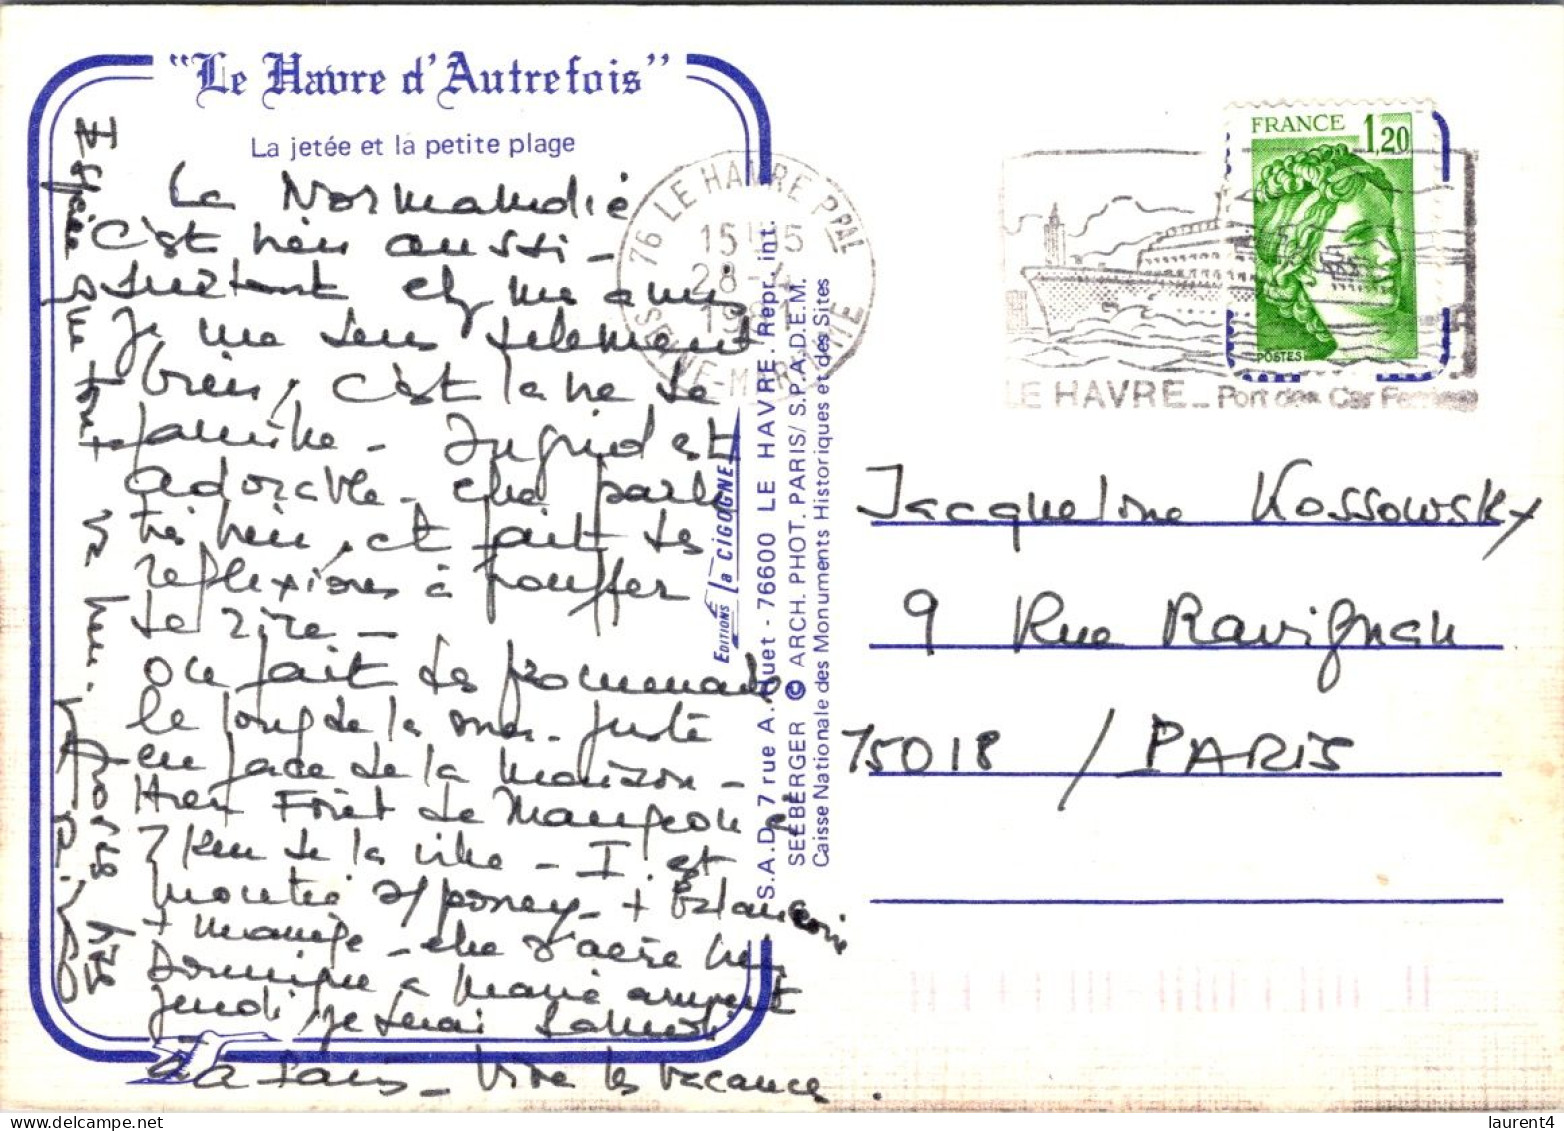 "Le Havre d'Autrefois"
La jetée et la petite plage
La Normandie
C'est bien aussi -
surtout chez mes amis
Je me sens telement
bien, c'est la vie de
famille - Ingrid est
adorable - elle parle
très bien, et fait des
reflexions à pouffer
de rire -
On fait des promenades
le long de la mer - juste
en face de la maison -
Hier Forêt de Mongeon à
7 km de la ville - I. est
montée s/poney - + balançoire
+ manège - elle s'aère bien
Dominique et Marie arrivent
jeudi, je serai samedi
à Paris - Vive les vacances.
Espère que tout va bien. Grosses bises
76 LE HAVRE PPAL
15H15
28-4
1981
SEINE-MARITIME
FRANCE 1,20
POSTES
LE HAVRE - Port des Car Ferries
Jacqueline Kossowsky
9 Rue Ravignan
75018 / PARIS
EDITIONS la CIGOGNE
S.A.D. 7 rue A. Huet - 76600 LE HAVRE. Repr. int.
SEEBERGER © ARCH. PHOT. PARIS/ S.P.A.D.E.M.
Caisse Nationale des Monuments Historiques et des Sites
laurent4